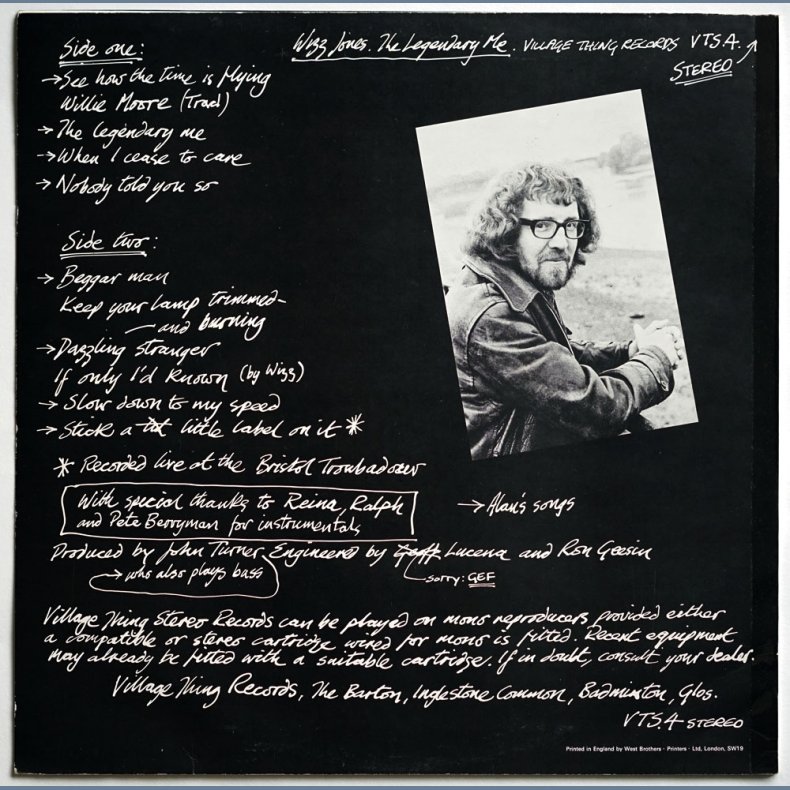 Wizz Jones. The Legendary Me. VILLAGE THING RECORDS VTS.4.
STEREO
Side one:
→ See how the time is flying
Willie Moore (Trad)
→ The legendary me
→ When I cease to care
→ Nobody told you so
Side two:
→ Beggar man
Keep your lamp trimmed–
— and burning
→ Dazzling stranger
If only I'd known (by Wizz)
→ Slow down to my speed
→ Stick a little label on it *
* Recorded live at the Bristol Troubadour
With special thanks to Reina, Ralph
and Pete Berryman for instrumentals
→ Alan's songs
Produced by John Turner, Engineered by Geoff Lucena and Ron Geesin
→ who also plays bass
sorry: GEF
Village Thing Stereo Records can be played on mono reproducers provided either
a compatible or stereo cartridge wired for mono is fitted. Recent equipment
may already be fitted with a suitable cartridge. If in doubt, consult your dealer.
Village Thing Records, The Barton, Inglestone Common, Badminton, Glos.
VTS.4 STEREO
Printed in England by West Brothers · Printers · Ltd, London, SW19